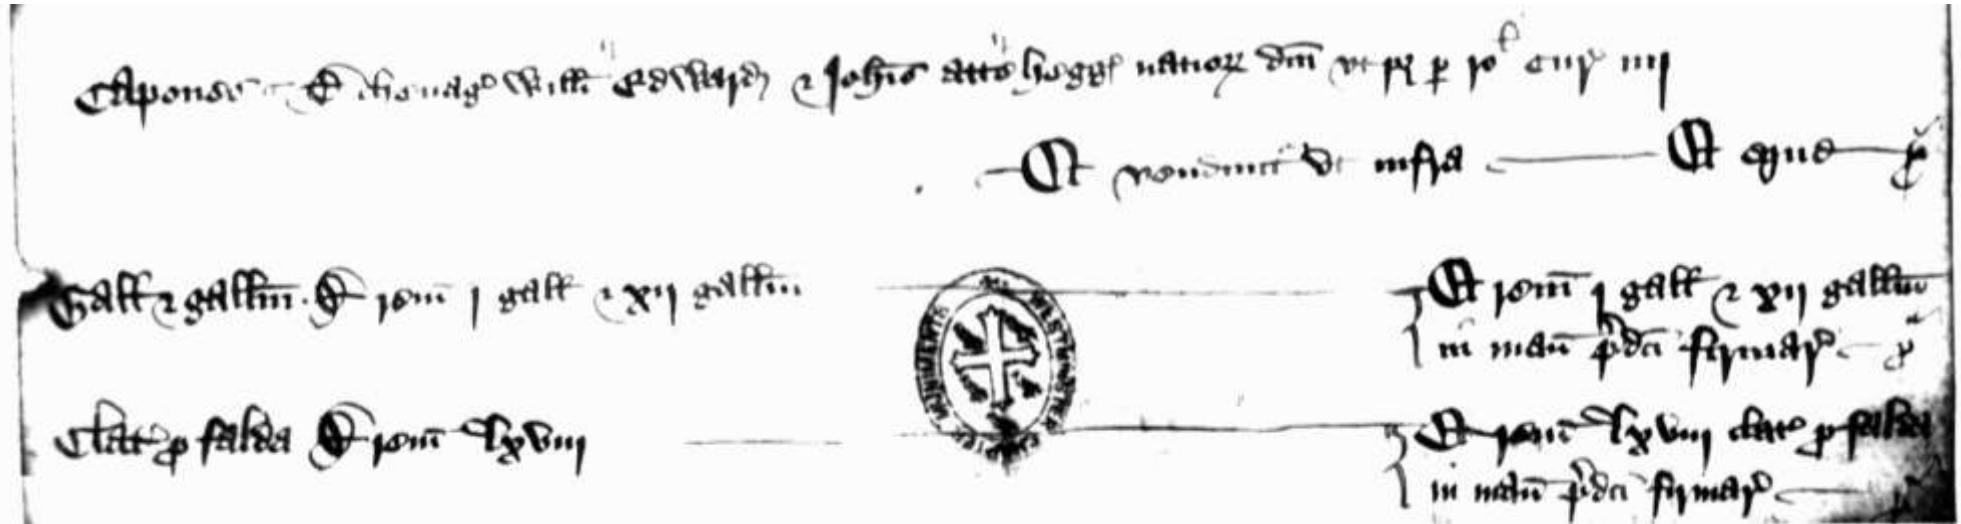 Capones De chevag Will Edward & Johis atte hogg nativor dni ut p3 p ro cur iiij
ij ij
Et vendunt ut infra Et eque
Gall & gallin De rem j gall & xij gallin Et rem j gall & xij gallin
in man pdci firmar
Clat p falda De rem lxviij Et rem lxviij clat p falda
in man pdci firmar